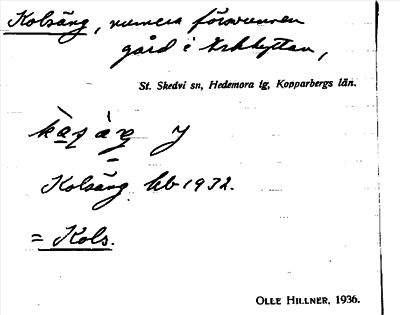 Kolsäng, numera försvunnen
gård i Arkhyttan,
St. Skedvi sn, Hedemora tg, Kopparbergs län.
Kolsäng hb 1932.
= Kols.
OLLE HILLNER, 1936.